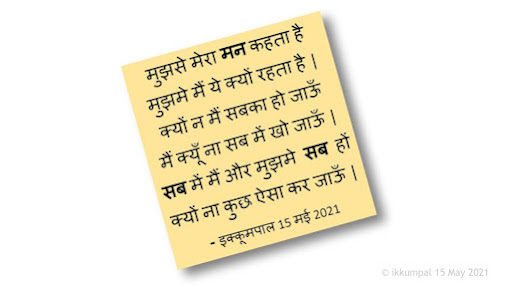 मुझसे मेरा मन कहता है
मुझमे मैं ये क्यों रहता है |
क्यों न मैं सबका हो जाऊँ
मैं क्यूँ ना सब में खो जाऊँ |
सब में मैं और मुझमे सब हों
क्यों ना कुछ ऐसा कर जाऊँ |
- इक्कूमपाल 15 मई 2021
© ikkumpal 15 May 2021